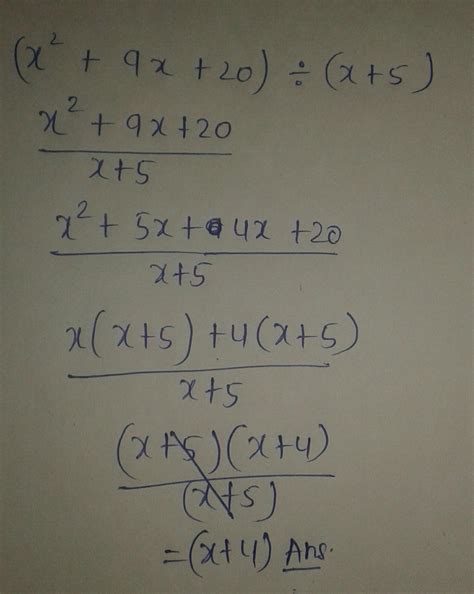 (x² + 9x + 20) ÷ (x+5)
x² + 9x+20
x+5
x² + 5x + 4x + 20
x+5
x(x+5) + 4(x+5)
x+5
(x+5)(x+4)
(x+5)
= (x+4) Ans.